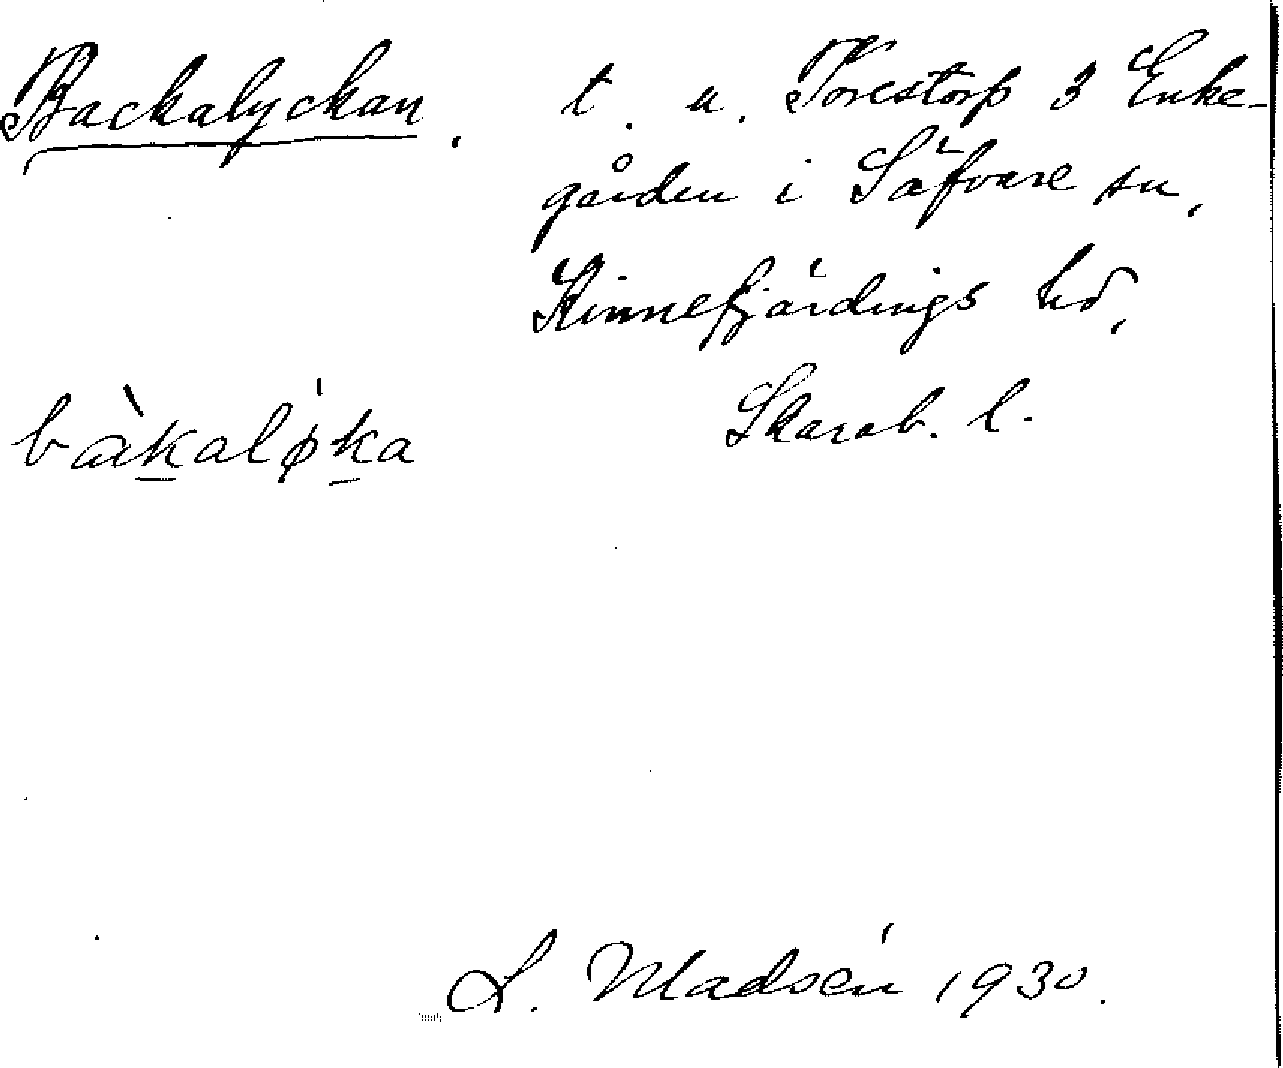 Backalyckan, t. u. Torestorp 3 Enke-
gården i Säfvare sn,
Kinnefjärdings hd,
bàkaløka Skarab. l.
L. Madsén 1930.